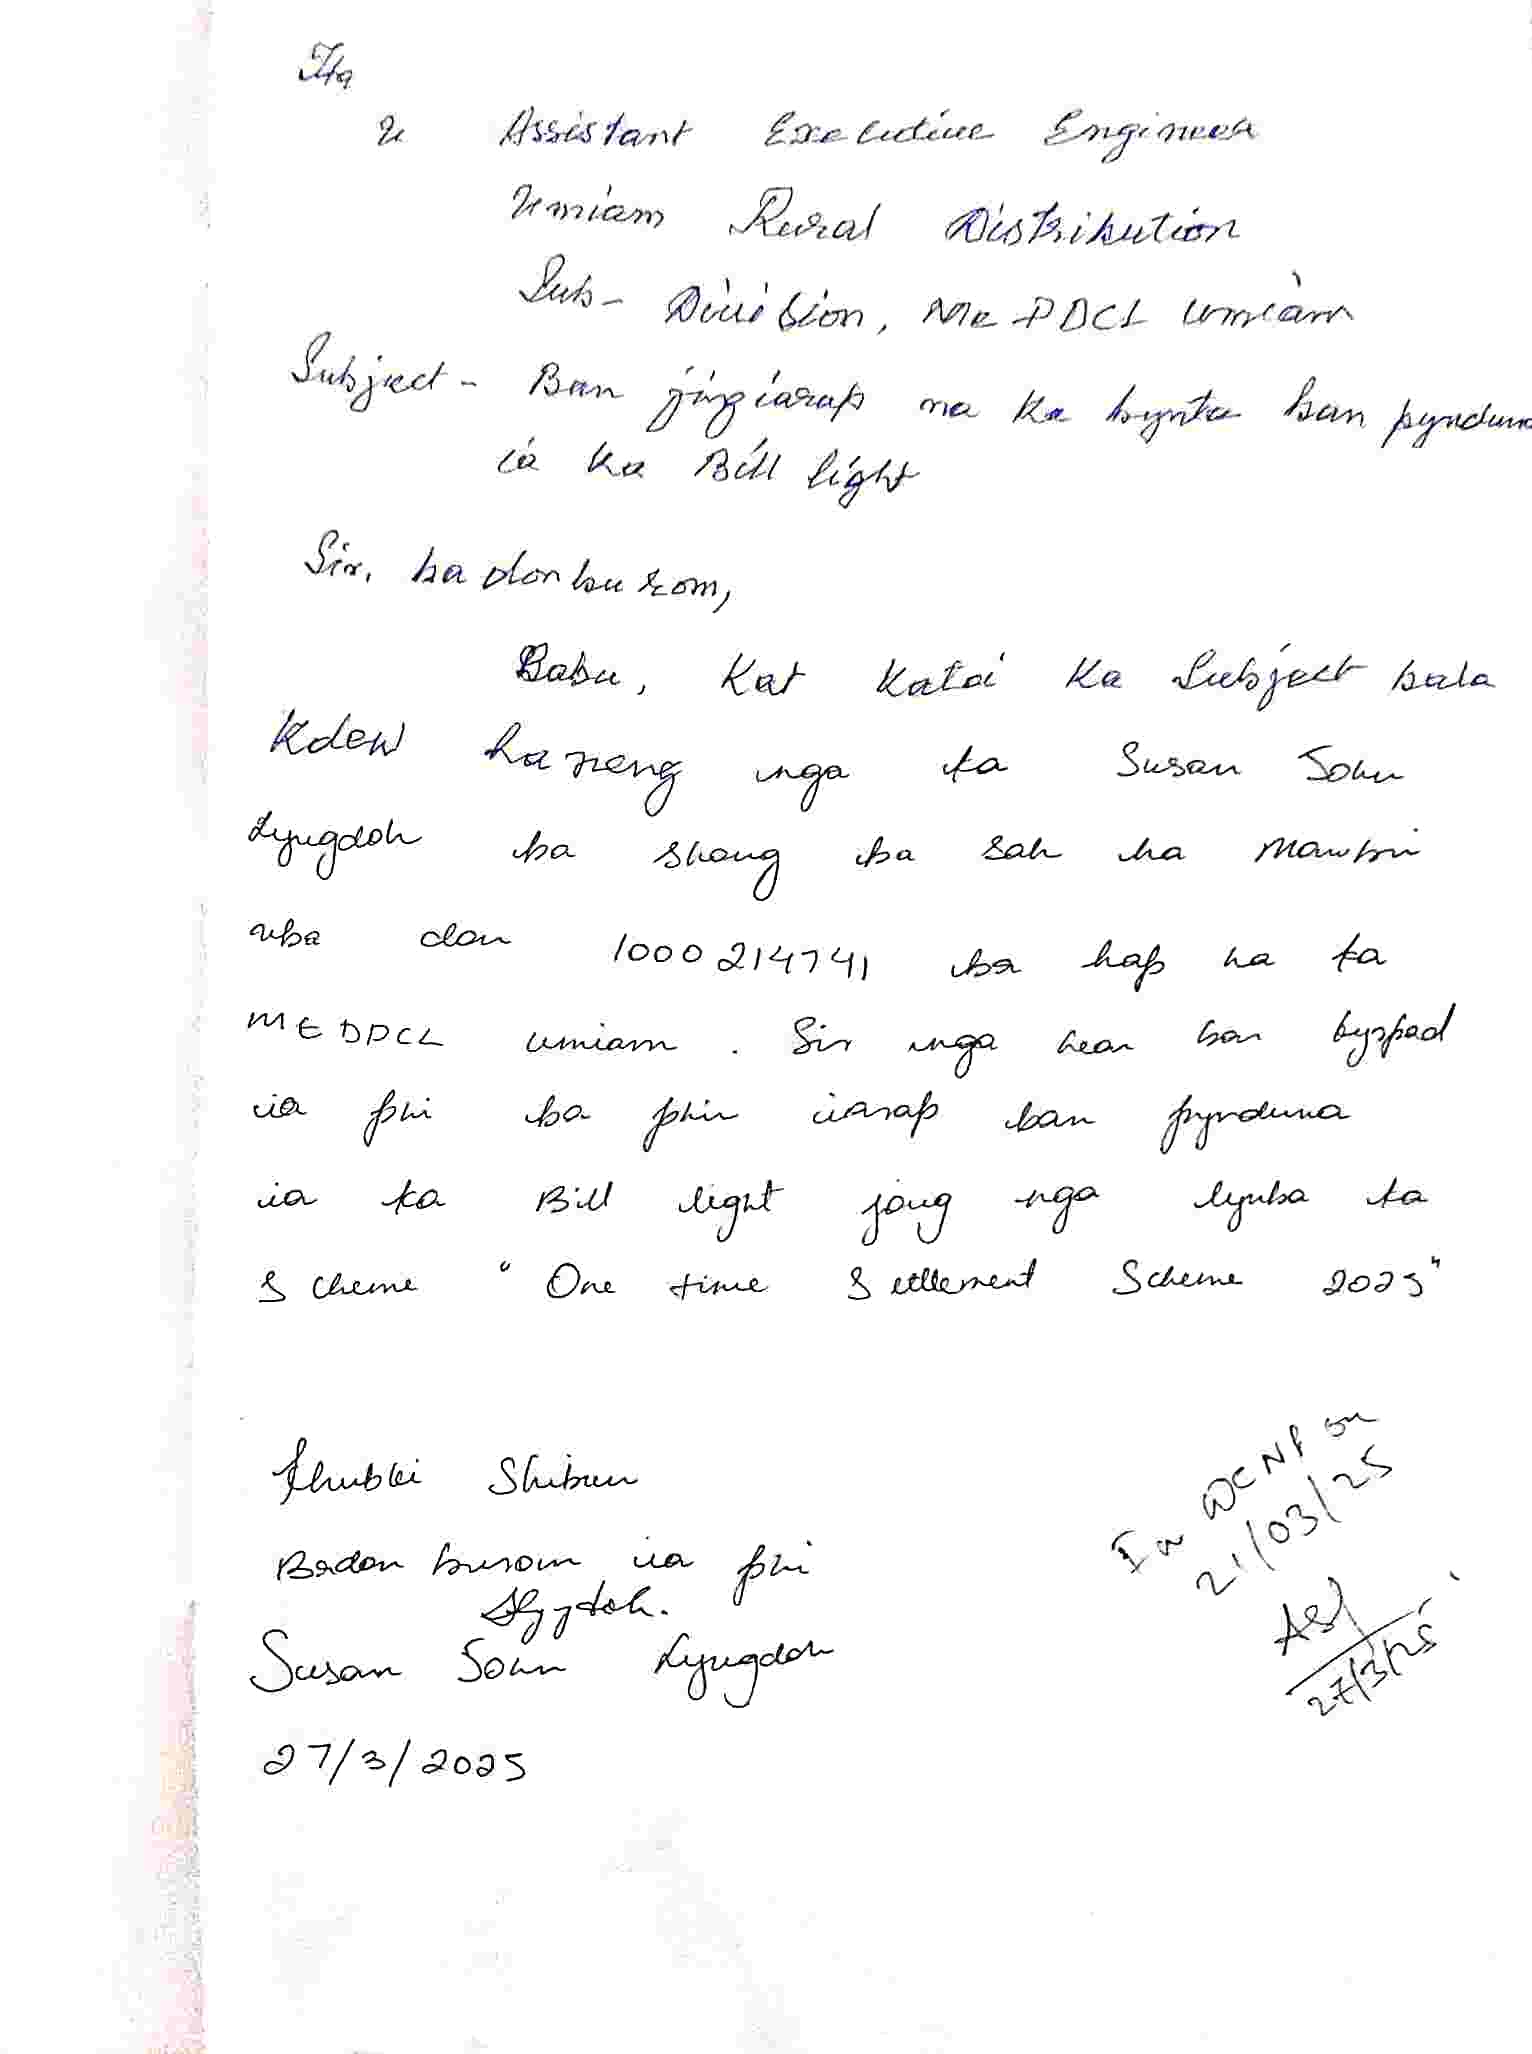 Ha
U Assistant Executive Engineer
Umiam Rural Distribution
Sub- Division, MePDCL Umiam
Subject- Ban jingiarap na ka bynta ban pynduna
ia ka Bill light
Sir, ba donburom,
Babu, Kat Katai Ka Subject bala
Kdew haneng nga ka Susan Sohn
Lyngdoh ba shong ba sah ha Mawbri
uba don 1000214741 ba hap ha ka
MEDPCL umiam. Sir nga kean ban kyrpad
ia phi ba phin iarap ban pynduna
ia ka Bill light jong nga lynba ka
Scheme " One time Settlement Scheme 2025"
Khublei Shibun
Badon burom ia phi
Slyngdoh.
Susan Sohn Lyngdoh
27/3/2025
In DCNP on
21/03/25
27/3/25